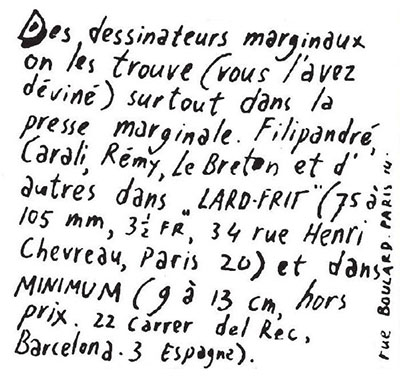 Des dessinateurs marginaux
on les trouve (vous l'avez
déviné) surtout dans la
presse marginale. Filipandré,
Carali, Rémy, Le Breton et d'
autres dans "LARD-FRIT" (75 à
105 mm, 3½ FR, 34 rue Henri
Chevreau, Paris 20) et dans
MINIMUM (9 à 13 cm, hors
prix. 22 Carrer del Rec,
Barcelona. 3 Espagne).
rue BOULARD. PARIS 14.